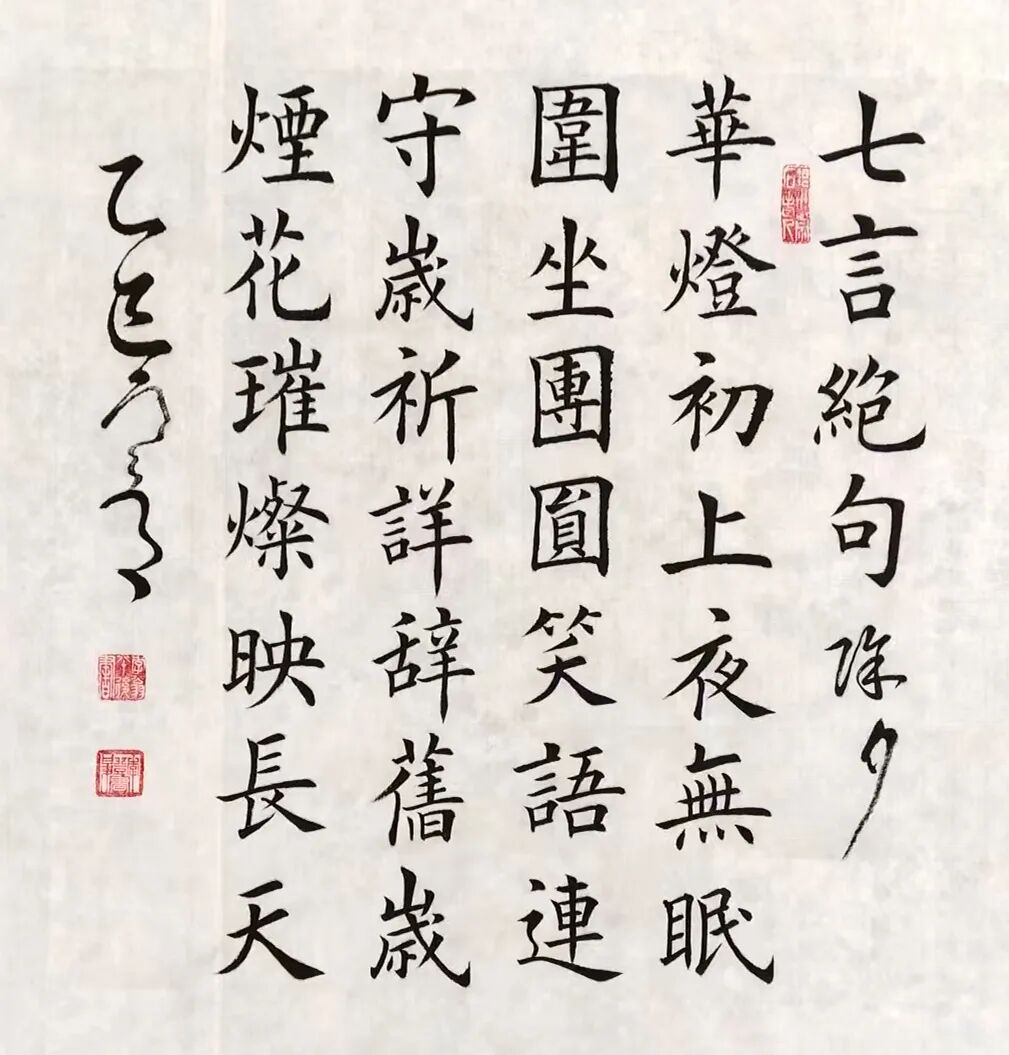 七言絕句 除夕
華燈初上夜無眠
圍坐團圓笑語連
守歲祈詳辞舊歲
煙花璀燦映長天
乙巳